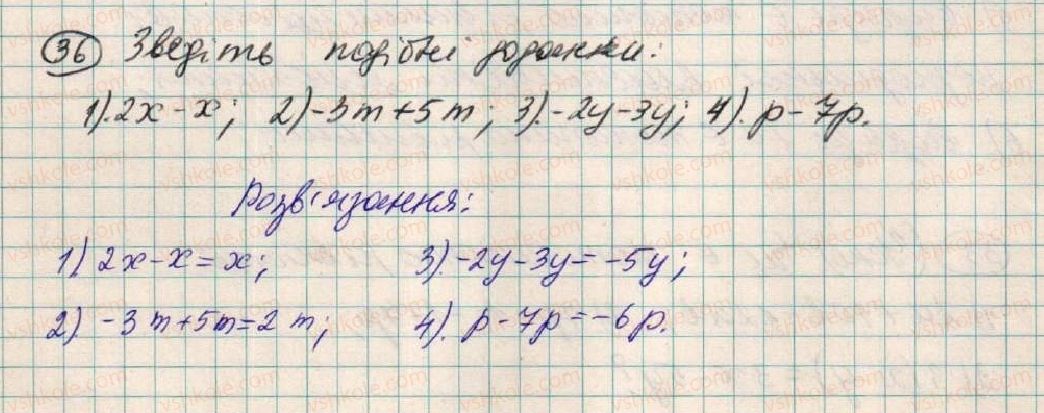 36 Зведіть подібні доданки:
1). 2x - x; 2) -3m + 5m; 3). -2y - 3y; 4). p - 7p.
Розв'язання:
1) 2x - x = x; 3). -2y - 3y = -5y;
2) -3m + 5m = 2m; 4). p - 7p = -6p.